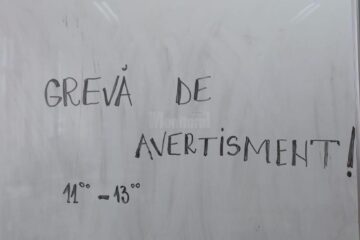 GREVĂ DE
AVERTISMENT!
11°° - 13°°